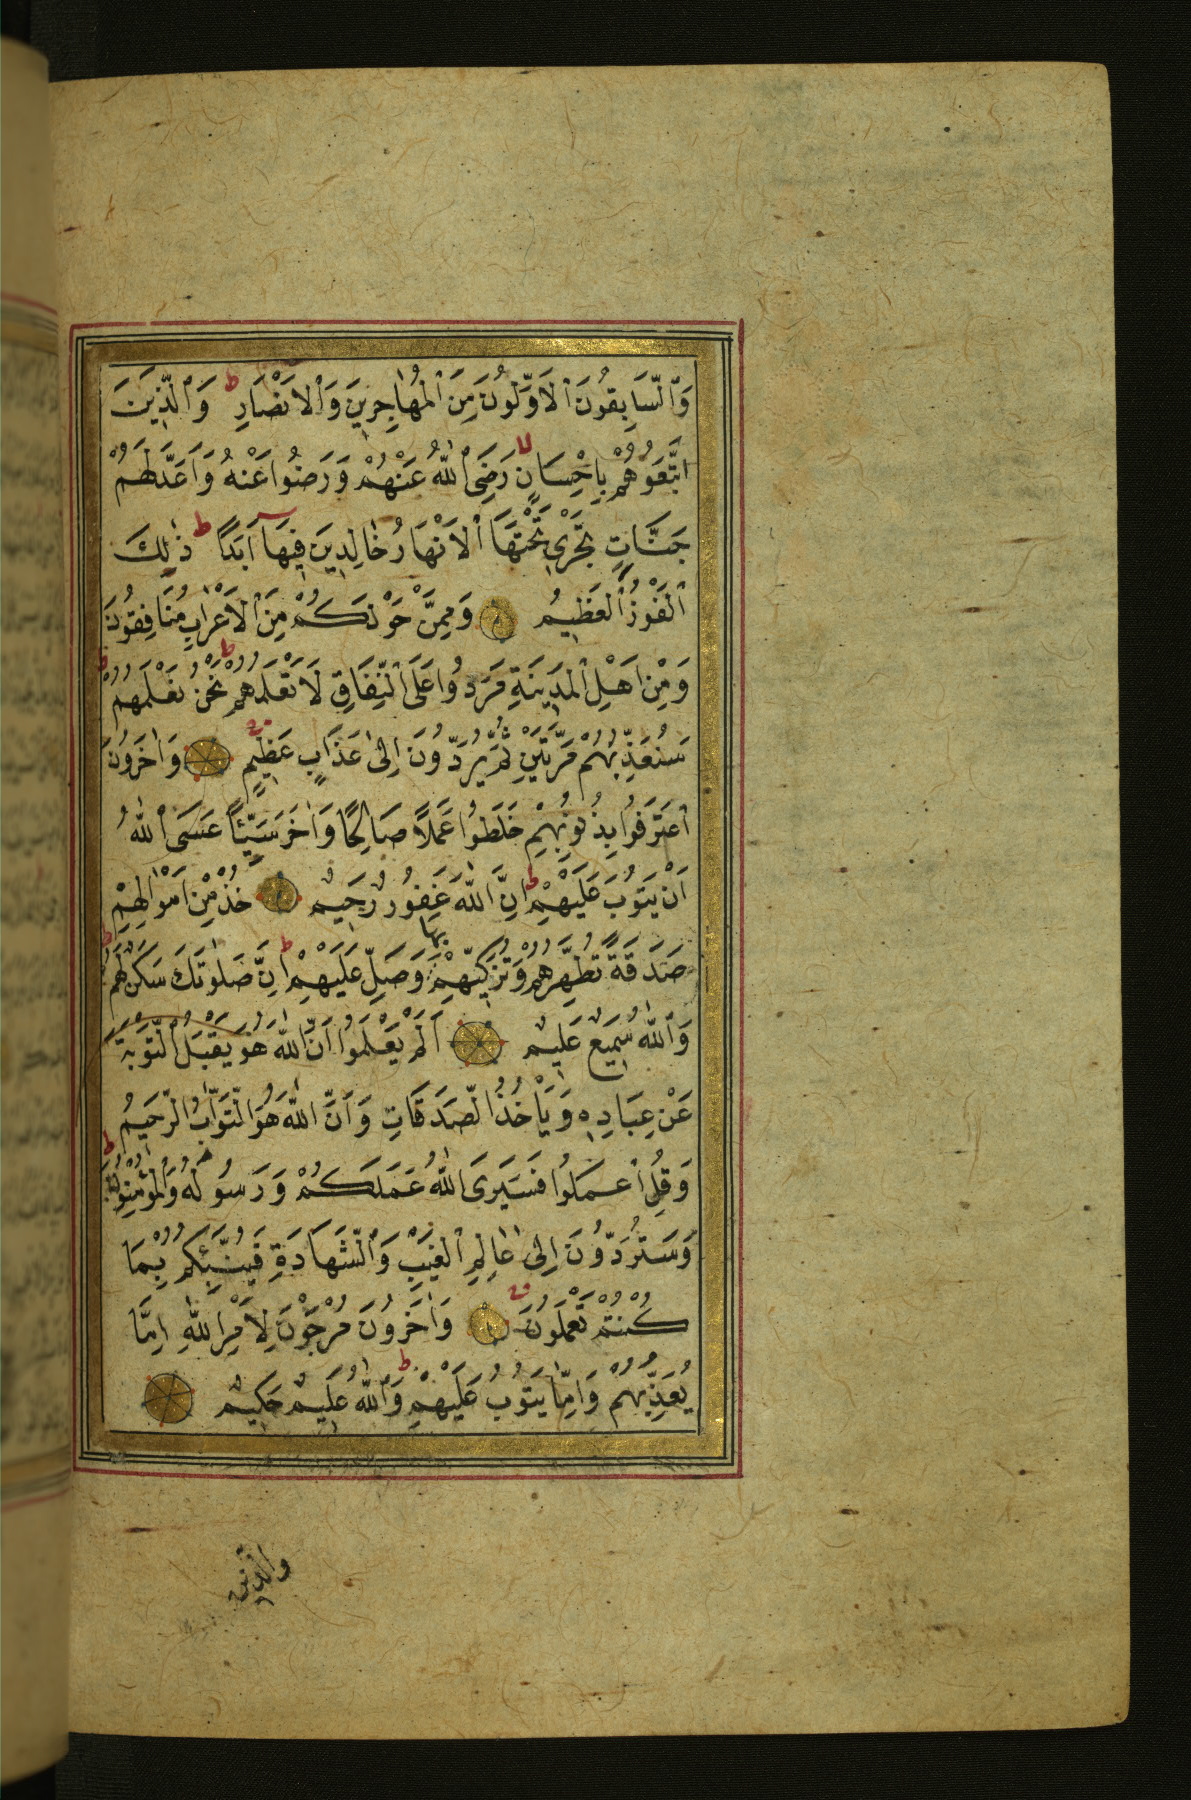 وَٱلسَّابِقُونَ ٱلْاَوَّلُونَ مِنَ ٱلْمُهَاجِرِينَ وَٱلْاَنْصَارِ ط وَٱلَّذِينَ
اتَّبَعُوهُمْ بِاِحْسَانٍ لا رَضِىَ ٱللّٰهُ عَنْهُمْ وَرَضُوا عَنْهُ وَاَعَدَّ لَهُمْ
جَنَّاتٍ تَجْرِى تَحْتَهَا ٱلْاَنْهَارُ خَالِدِينَ فِيهَا اَبَدًا ط ذٰلِكَ
ٱلْفَوْزُ ٱلْعَظِيمُ وَمِمَّنْ حَوْلَكُمْ مِنَ ٱلْاَعْرَابِ مُنَافِقُونَ ط
وَمِنْ اَهْلِ ٱلْمَدِينَةِ مَرَدُوا عَلَى ٱلنِّفَاقِ لَا تَعْلَمُهُمْ ط نَحْنُ نَعْلَمُهُمْ ط
سَنُعَذِّبُهُمْ مَرَّتَيْنِ ثُمَّ يُرَدُّونَ اِلٰى عَذَابٍ عَظِيمٍ وَاٰخَرُونَ
ٱعْتَرَفُوا بِذُنُوبِهِمْ خَلَطُوا عَمَلًا صَالِحًا وَاٰخَرَ سَيِّئًا عَسَى ٱللّٰهُ
اَنْ يَتُوبَ عَلَيْهِمْ ط اِنَّ ٱللّٰهَ غَفُورٌ رَحِيمٌ خُذْ مِنْ اَمْوَالِهِمْ
صَدَقَةً تُطَهِّرُهُمْ وَتُزَكِّيهِمْ بِهَا وَصَلِّ عَلَيْهِمْ ط اِنَّ صَلٰوتَكَ سَكَنٌ لَهُمْ ط
وَٱللّٰهُ سَمِيعٌ عَلِيمٌ اَلَمْ يَعْلَمُوا اَنَّ ٱللّٰهَ هُوَ يَقْبَلُ ٱلتَّوْبَةَ
عَنْ عِبَادِهِ وَيَاْخُذُ ٱلصَّدَقَاتِ وَاَنَّ ٱللّٰهَ هُوَ ٱلتَّوَّابُ ٱلرَّحِيمُ
وَقُلِ ٱعْمَلُوا فَسَيَرَى ٱللّٰهُ عَمَلَكُمْ وَرَسُولُهُ وَٱلْمُؤْمِنُونَ ط
وَسَتُرَدُّونَ اِلٰى عَالِمِ ٱلْغَيْبِ وَٱلشَّهَادَةِ فَيُنَبِّئُكُمْ بِمَا
كُنْتُمْ تَعْمَلُونَ وَاٰخَرُونَ مُرْجَوْنَ لِاَمْرِ ٱللّٰهِ اِمَّا
يُعَذِّبُهُمْ وَاِمَّا يَتُوبُ عَلَيْهِمْ ط وَٱللّٰهُ عَلِيمٌ حَكِيمٌ
والذين